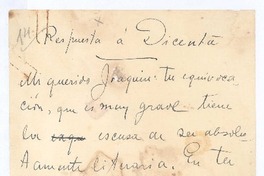 Respuesta á Dicenta
Mi querido Joaquín: tu equivoca
ción, que es muy grave tiene
la vaga escusa de ser absolu
tamente literaria. En tu